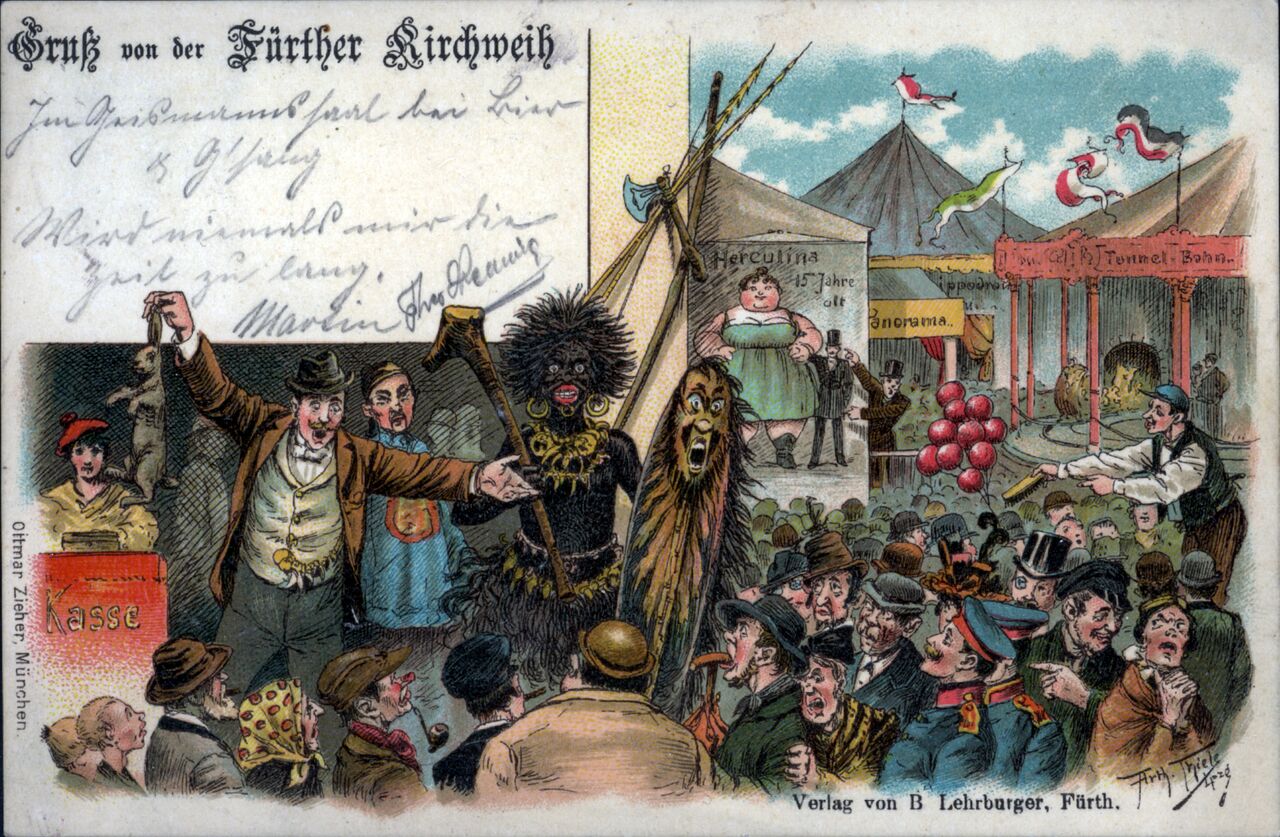 Gruß von der Fürther Kirchweih
Im Geismannssaal bei Bier
& G'sang
Wird niemals mir die
Zeit zu lang.
Martin
Herculina
15 Jahre
alt
Panorama.
Hippodrom
Tunnel-Bahn.
Kasse
Ottmar Zieher, München
Arth. Thiele
Lpzg
Verlag von B Lehrburger, Fürth.